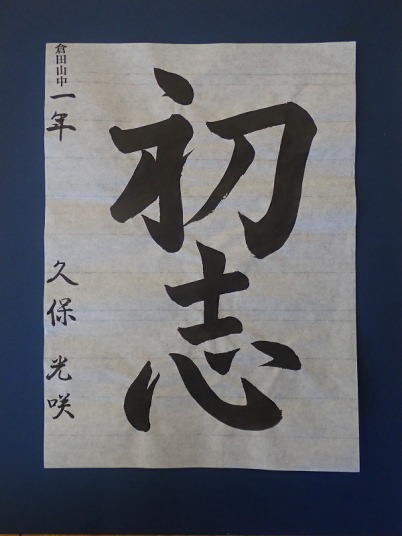 初志
倉田山中一年 久保光咲